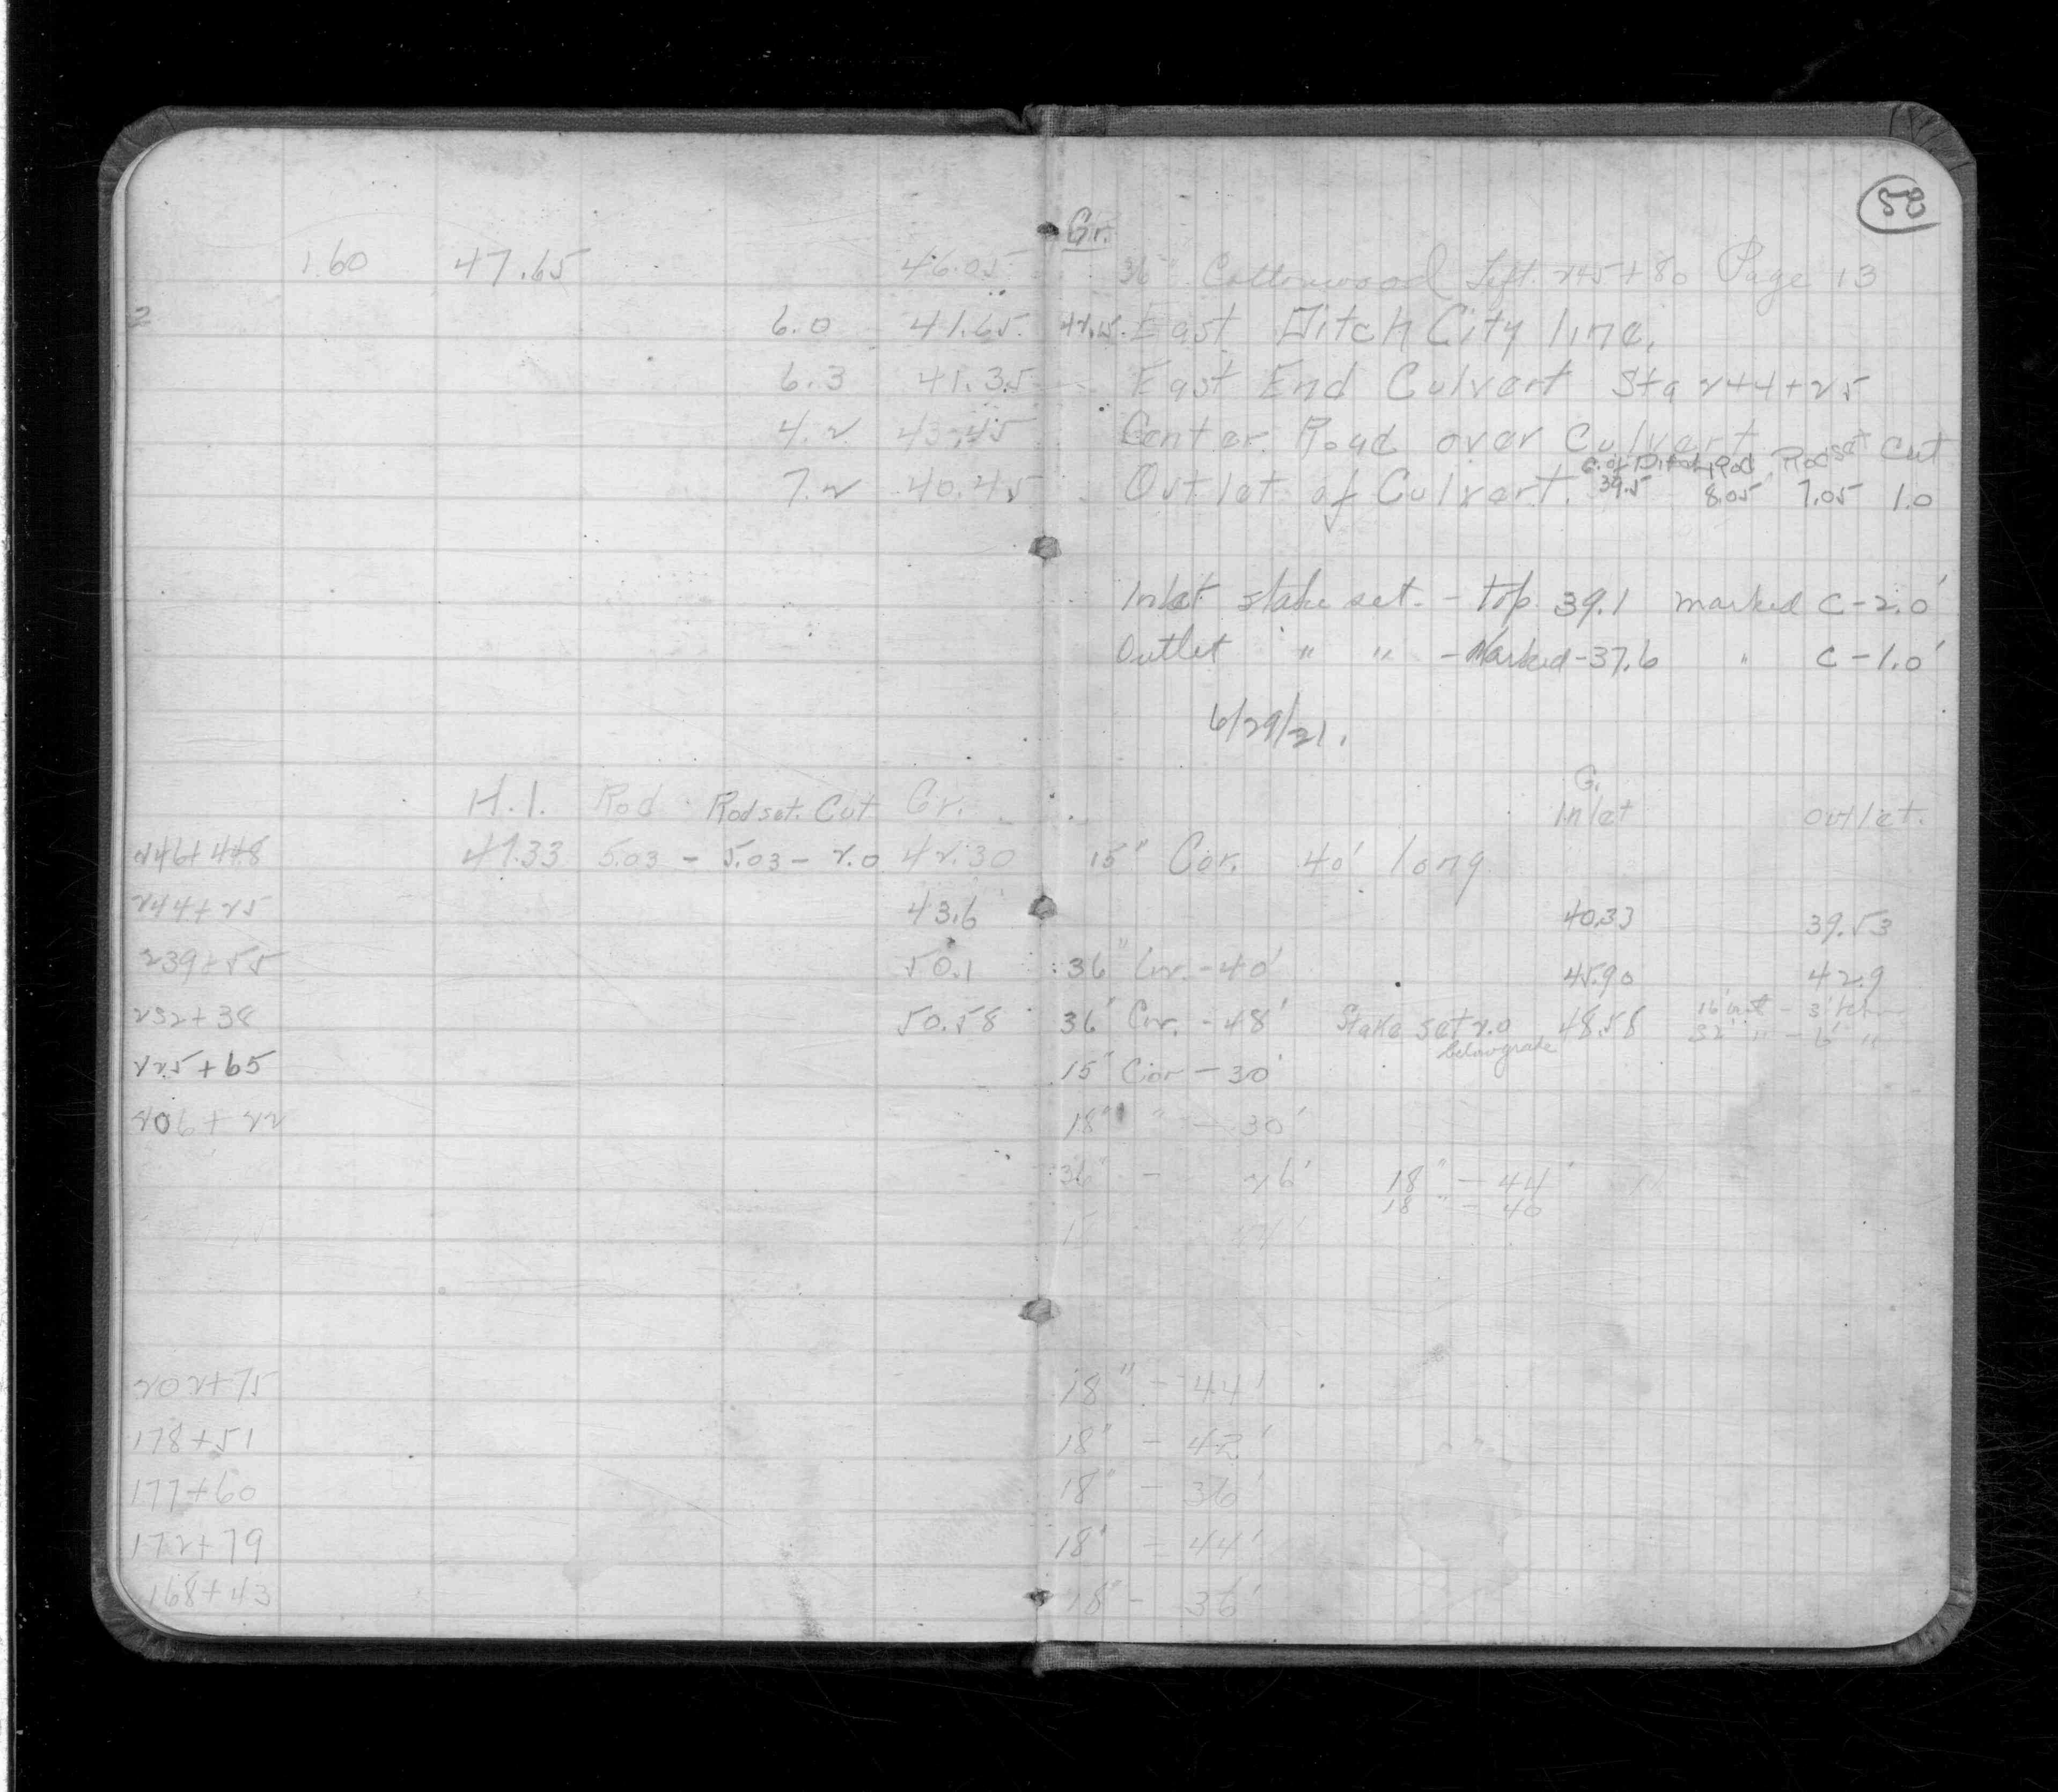 52
Gr.
1.60 47.65 46.05 36" Cottonwood Left. 245+80 Page 13
2 6.0 41.65 42.15 East Ditch City line.
6.3 41.35 East End Culvert Sta 244+25
4.2 43.45 Center Road over Culvert
G. of Ditch Rod Rod set Cut
7.2 40.45 Outlet of Culvert. 39.5 8.05 7.05 1.0
Inlet stake set. - top 39.1 marked C-2.0'
Outlet " " - Marked - 37.6 " C-1.0'
6/29/21.
G.
H.I. Rod Rod set. Cut Gr. Inlet Outlet.
246+48 47.33 5.03 - 5.03 - 2.0 42.30 15" Cor. 40' long
244+25 43.6 40.33 39.53
239+55 50.1 36" Cor. - 40' 45.90 42.9
232+38 50.58 36" Cor. - 48' Stake set 2.0 48.58 16' out - 3'
below grade 32' " - 6' "
225+65 15" Cor - 30'
206+22 18" " - 30'
36" - 26' 18" - 44'
18" - 40
15
202+75 18" - 44'
178+51 18" - 42'
177+60 18" - 36'
172+79 18" - 44'
168+43 18" - 36'